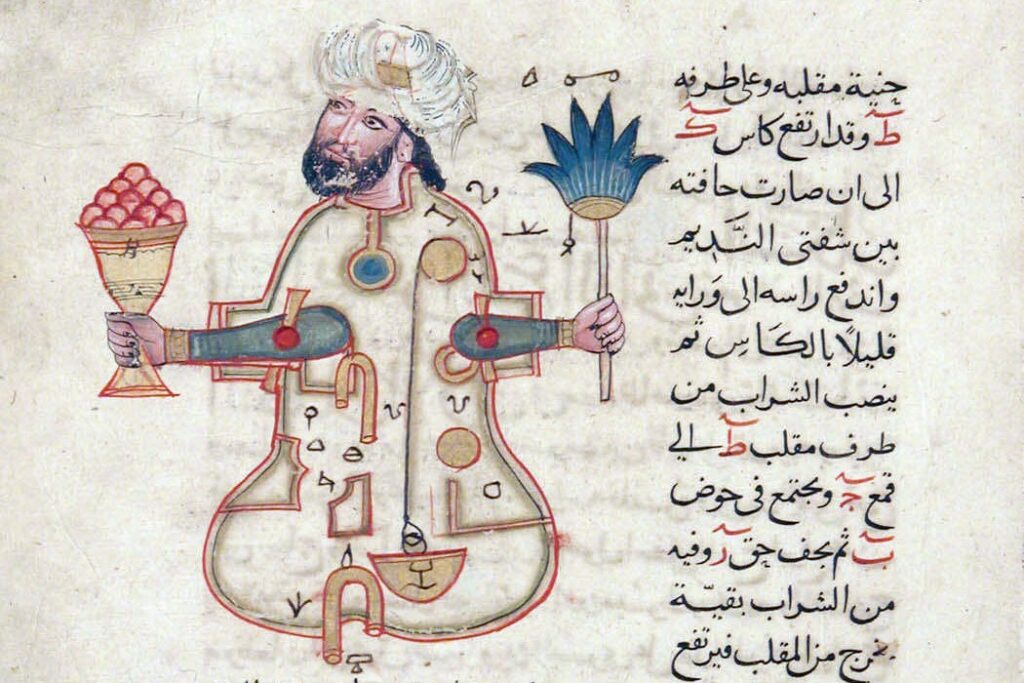 جنية مقلبه وعلى طرفه
ط وقد ارتفع كاس ك
الى ان صارت حافته
بين شفتى النَّديم
واندفع راسه الى وَرايه
قليلًا بالكَاسِ ثم
ينصب الشراب من
طرف مقلب ط الي
قمع ج ويجتمع فى حوض
ب ثم يجف حق ر وفيه
من الشراب بقيّة
يخرج من المقلب فيرتفع